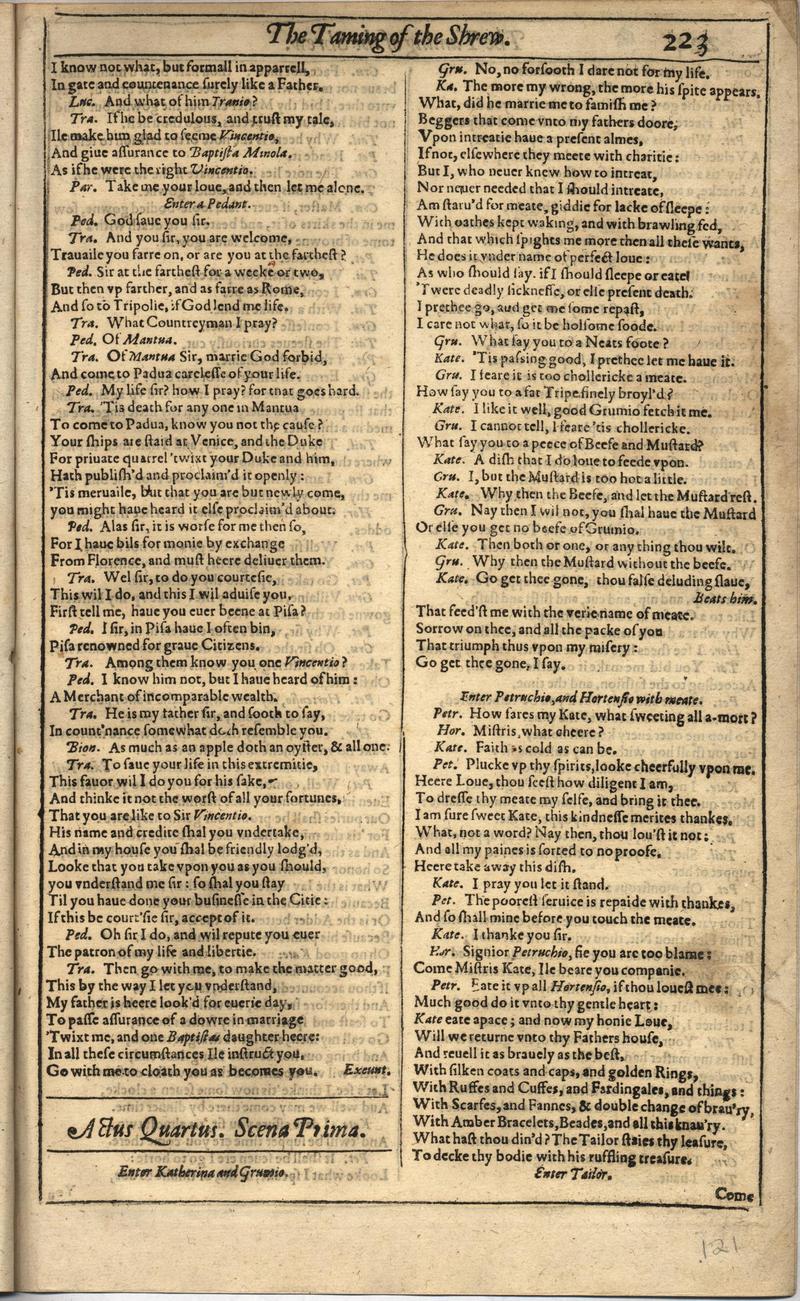 The Taming of the Shrew.
223
I know not what, but formall in apparrell,
In gate and countenance surely like a Father.
Luc. And what of him Tranio?
Tra. If he be credulous, and trust my tale,
Ile make him glad to seeme Vincentio,
And giue assurance to Baptista Minola.
As if he were the right Vincentio.
Par. Take me your loue, and then let me alone.
Enter a Pedant.
Ped. God saue you sir.
Tra. And you sir, you are welcome,
Trauaile you farre on, or are you at the farthest?
Ped. Sir at the farthest for a weeke or two,
But then vp farther, and as farre as Rome,
And so to Tripolie, if God lend me life.
Tra. What Countreyman I pray?
Ped. Of Mantua.
Tra. Of Mantua Sir, marrie God forbid,
And come to Padua carelesse of your life.
Ped. My life sir? how I pray? for that goes hard.
Tra. 'Tis death for any one in Mantua
To come to Padua, know you not the cause?
Your ships are staid at Venice, and the Duke
For priuate quarrel 'twixt your Duke and him,
Hath publish'd and proclaim'd it openly:
'Tis meruaile, but that you are but newly come,
you might haue heard it else proclaim'd about.
Ped. Alas sir, it is worse for me then so,
For I haue bils for monie by exchange
From Florence, and must heere deliuer them.
Tra. Wel sir, to do you courtesie,
This wil I do, and this I wil aduise you,
First tell me, haue you euer beene at Pisa?
Ped. I sir, in Pisa haue I often bin,
Pisa renowned for graue Citizens.
Tra. Among them know you one Vincentio?
Ped. I know him not, but I haue heard of him:
A Merchant of incomparable wealth.
Tra. He is my father sir, and sooth to say,
In count'nance somewhat doth resemble you.
Bion. As much as an apple doth an oyster, & all one.
Tra. To saue your life in this extremitie,
This fauor wil I do you for his sake,
And thinke it not the worst of all your fortunes,
That you are like to Sir Vincentio.
His name and credite shal you vndertake,
And in my house you shal be friendly lodg'd,
Looke that you take vpon you as you should,
you vnderstand me sir: so shal you stay
Til you haue done your businesse in the Citie:
If this be court'sie sir, accept of it.
Ped. Oh sir I do, and wil repute you euer
The patron of my life and libertie.
Tra. Then go with me, to make the matter good,
This by the way I let you vnderstand,
My father is heere look'd for euerie day,
To passe assurance of a dowre in marriage
'Twixt me, and one Baptistas daughter heere:
In all these circumstances Ile instruct you,
Go with me to cloath you as becomes you. Exeunt.
Actus Quartus. Scena Prima.
Enter Katherina and Grumio.
Gru. No, no forsooth I dare not for my life.
Ka. The more my wrong, the more his spite appears.
What, did he marrie me to famish me?
Beggers that come vnto my fathers doore,
Vpon intreatie haue a present almes,
If not, elsewhere they meete with charitie:
But I, who neuer knew how to intreat,
Nor neuer needed that I should intreate,
Am staru'd for meate, giddie for lacke of sleepe:
With oathes kept waking, and with brawling fed,
And that which spights me more then all these wants,
He does it vnder name of perfect loue:
As who should say. if I should sleepe or eate
'Twere deadly sicknesse, or else present death.
I prethee go, and get me some repast,
I care not what, so it be holsome foode.
Gru. What say you to a Neats foote?
Kate. 'Tis passing good, I prethee let me haue it.
Gru. I feare it is too chollericke a meate.
How say you to a fat Tripe finely broyl'd?
Kate. I like it well, good Grumio fetch it me.
Gru. I cannot tell, I feare 'tis chollericke.
What say you to a peece of Beefe and Mustard?
Kate. A dish that I do loue to feede vpon.
Gru. I, but the Mustard is too hot a little.
Kate. Why then the Beefe, and let the Mustard rest.
Gru. Nay then I wil not, you shal haue the Mustard
Or else you get no beefe of Grumio.
Kate. Then both or one, or any thing thou wilt.
Gru. Why then the Mustard without the beefe.
Kate. Go get thee gone, thou false deluding slaue,
Beats him.
That feed'st me with the verie name of meate.
Sorrow on thee, and all the packe of you
That triumph thus vpon my misery:
Go get thee gone, I say.
Enter Petruchio, and Hortensio with meate.
Petr. How fares my Kate, what sweeting all a-mort?
Hor. Mistris, what cheere?
Kate. Faith as cold as can be.
Pet. Plucke vp thy spirits, looke cheerfully vpon me.
Heere Loue, thou seest how diligent I am,
To dresse thy meate my selfe, and bring it thee.
I am sure sweet Kate, this kindnesse merites thankes.
What, not a word? Nay then, thou lou'st it not:
And all my paines is sorted to no proofe.
Heere take away this dish.
Kate. I pray you let it stand.
Pet. The poorest seruice is repaide with thankes,
And so shall mine before you touch the meate.
Kate. I thanke you sir.
Hor. Signior Petruchio, fie you are too blame:
Come Mistris Kate, Ile beare you companie.
Petr. Eate it vp all Hortensio, if thou louest mee:
Much good do it vnto thy gentle heart:
Kate eate apace; and now my honie Loue,
Will we returne vnto thy Fathers house,
And reuell it as brauely as the best,
With silken coats and caps, and golden Rings,
With Ruffes and Cuffes, and Fardingales, and things:
With Scarfes, and Fannes, & double change of brau'ry,
With Amber Bracelets, Beades, and all this knau'ry.
What hast thou din'd? The Tailor staies thy leasure,
To decke thy bodie with his ruffling treasure.
Enter Tailor.
Come
121